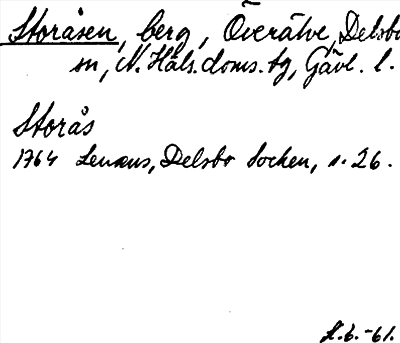 Storåsen, berg, Överälve, Delsbo
sn, N. Häls. doms. tg, Gävl. l.
Storås
1764 Lenæus, Delsbo Socken, s. 26.
H.b.-61.